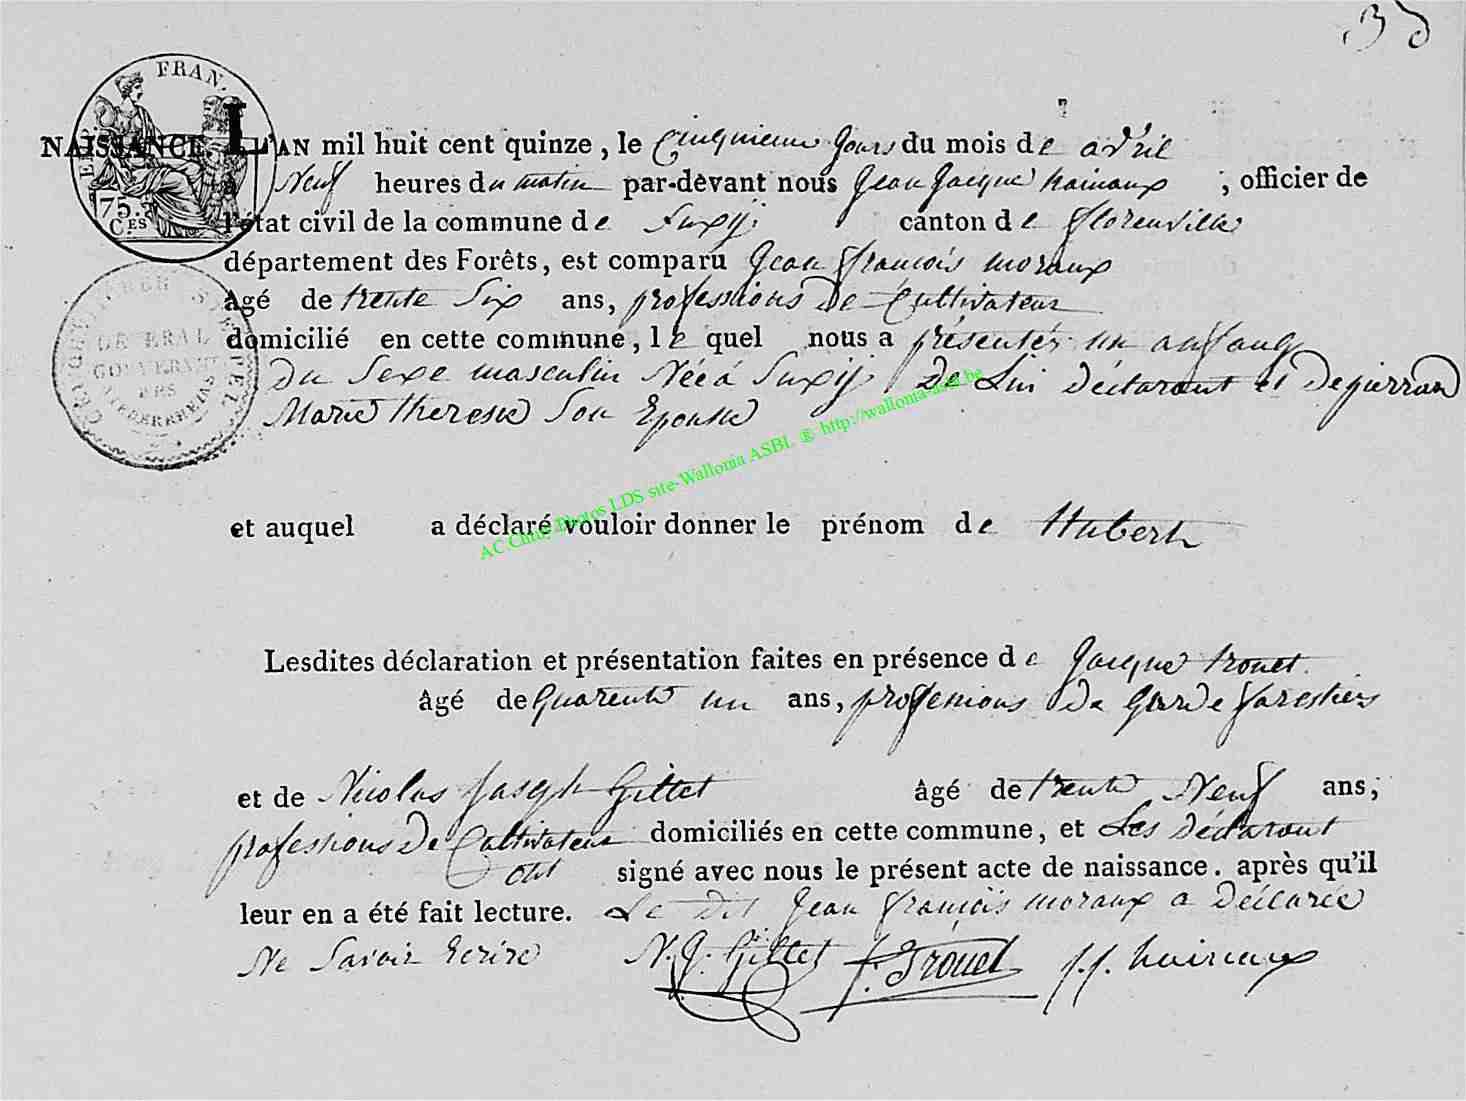 35
FRAN.
75.
C.ES
NAISSANCE L'AN mil huit cent quinze, le Cinquieme Jours du mois de avril
à Neuf heures du matin par-devant nous Jean Jacque hainaux, officier de
l'état civil de la commune de Suxÿ canton de florenville
département des Forêts, est comparu Jean françois moraux
âgé de trente Six ans, professions De Cultivateur
domicilié en cette commune, le quel nous a présentér un anfang
Du Sexe masculin Née à Suxÿ De Lui Déclarant et De pierran
Marie therese Son Epouse
GENERAL
GOUVERNEMENT
NIEDERRHEIN
AC Chiny-Photos LDS site-Wallonia ASBL ® http://wallonia-asbl.be
et auquel a déclaré vouloir donner le prénom de Hubert
Lesdites déclaration et présentation faites en présence de Jacque trouet.
âgé de Quarente un ans, professions De Garde forestiers
et de Nicolas Joseph Gillet âgé de trente Neuf ans,
professions De Cultivateur domiciliés en cette commune, et Les Déclarant
ont signé avec nous le présent acte de naissance. après qu'il
leur en a été fait lecture. Le dit Jean françois moraux a Déclarée
Ne Savoir Ecrire N. J. Gillet J. Trouet J. J. hainaux